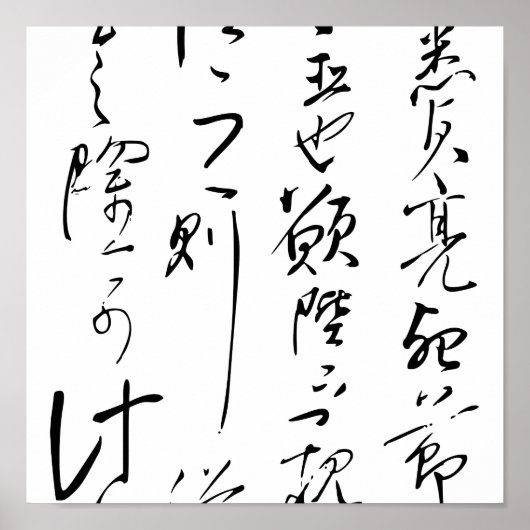 悉貞亮死節
臣也願陛下親
信之則漢
之隆可計